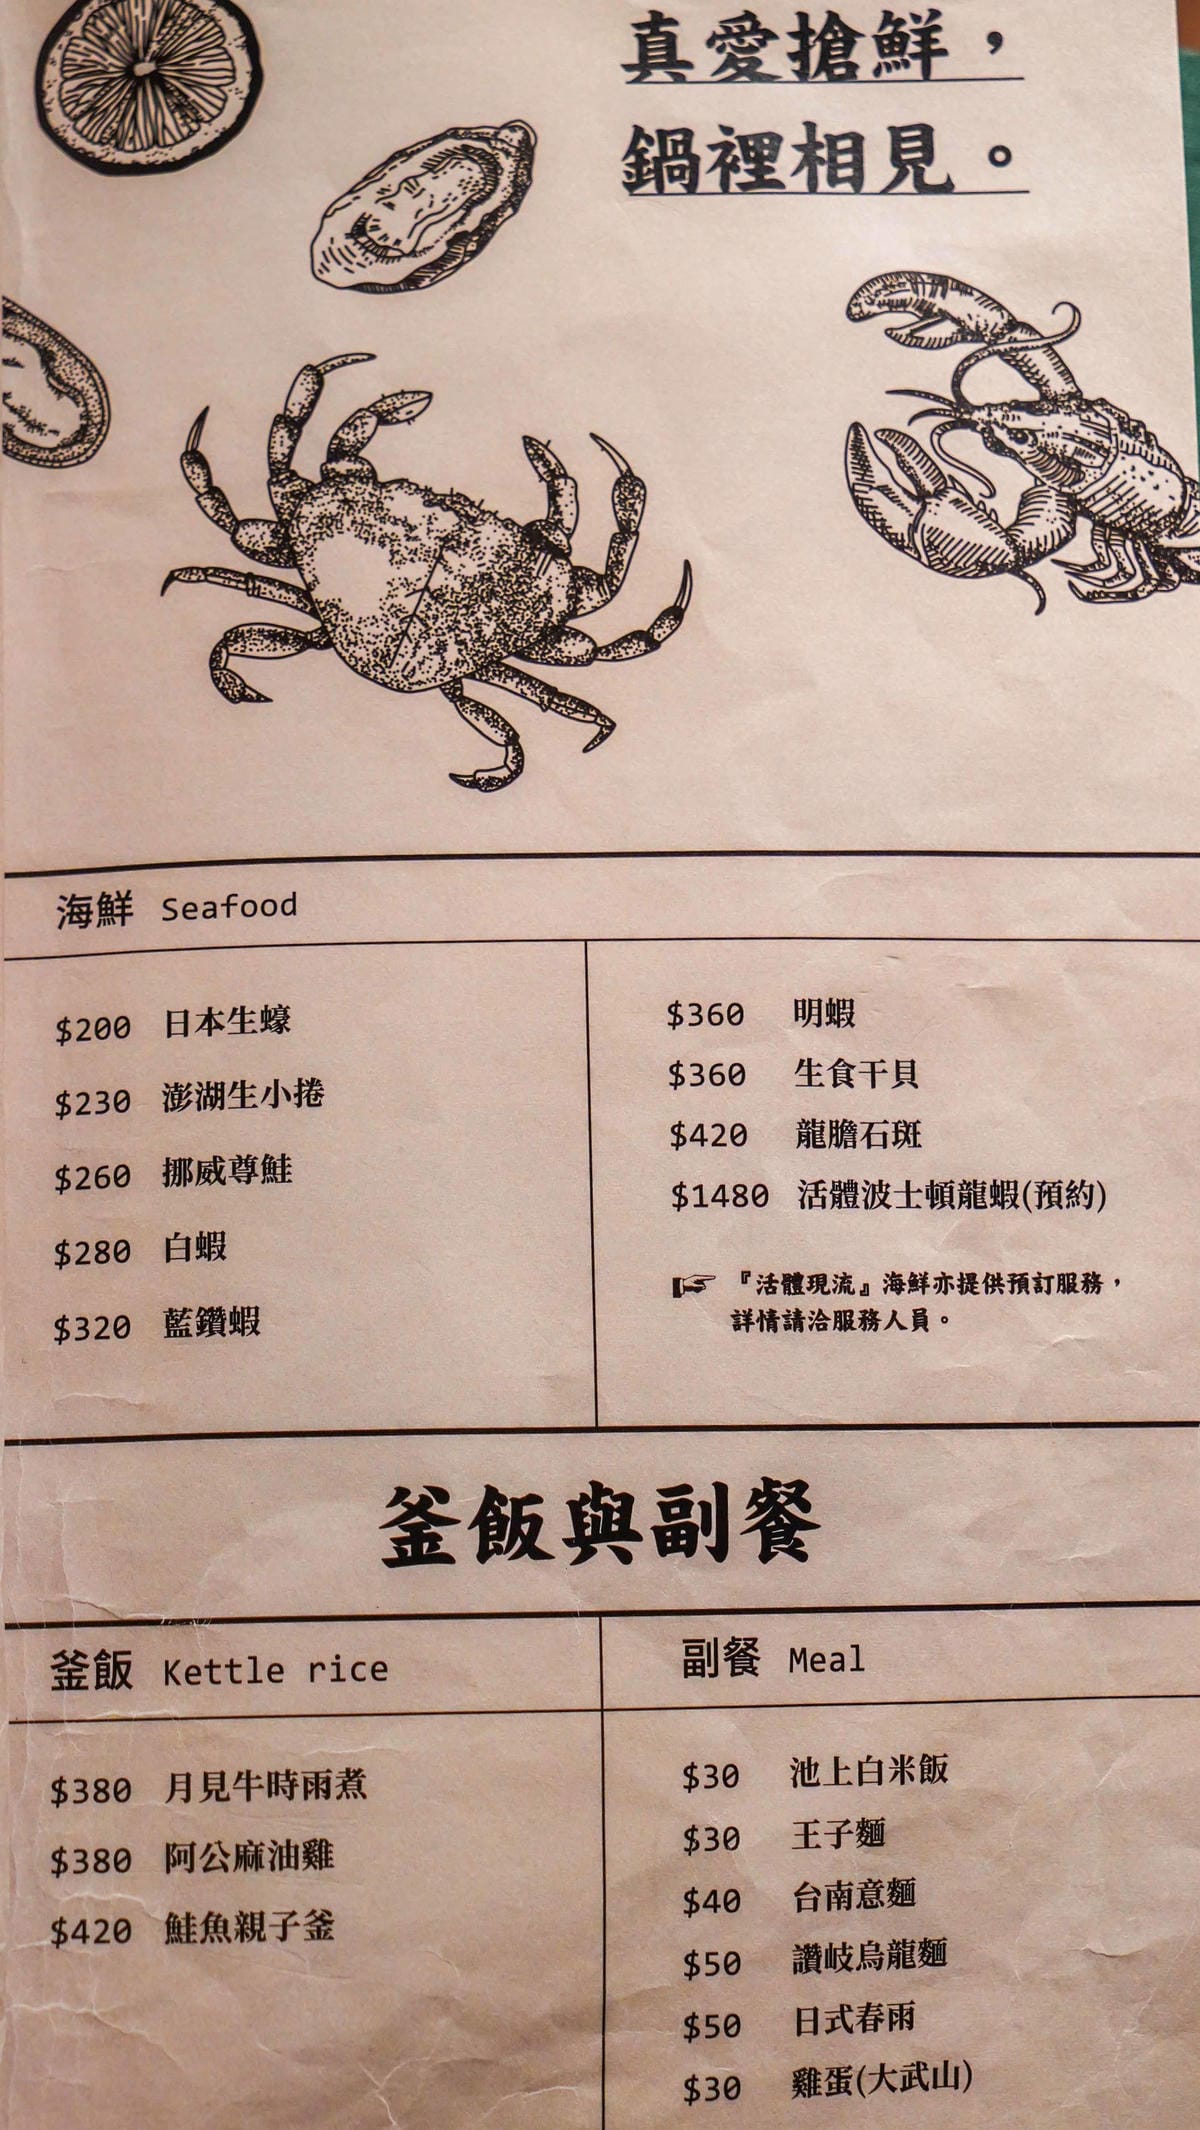 真愛搶鮮，
鍋裡相見。
海鮮 Seafood
$200 日本生蠔
$230 澎湖生小捲
$260 挪威尊鮭
$280 白蝦
$320 藍鑽蝦
$360 明蝦
$360 生食干貝
$420 龍膽石斑
$1480 活體波士頓龍蝦(預約)
☞ 『活體現流』海鮮亦提供預訂服務，
詳情請洽服務人員。
釜飯與副餐
釜飯 Kettle rice
$380 月見牛時雨煮
$380 阿公麻油雞
$420 鮭魚親子釜
副餐 Meal
$30 池上白米飯
$30 王子麵
$40 台南意麵
$50 讚岐烏龍麵
$50 日式春雨
$30 雞蛋(大武山)